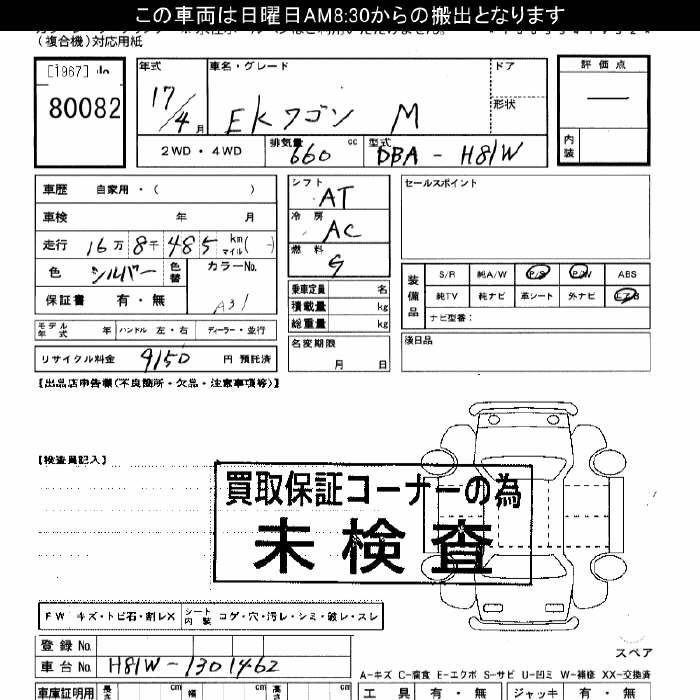 この車両は日曜日AM8:30からの搬出となります
(複合機)対応用紙
[1967]
80082
年式
17/4月
車名・グレード
EKワゴン M
ドア
形状
評価点
―
内装
2WD・4WD
排気量 660 cc
型式 DBA - H81W
車歴 自家用・( )
車検 年 月
走行 16万8千485 km マイル( )
色 シルバー 色替
カラーNo. A31
保証書 有・無
モデル年式 年 ハンドル 左・右 ディーラー・並行
リサイクル料金 9150 円 預託済
シフト AT
冷房 AC
燃料 G
乗車定員 名
積載量 kg
総重量 kg
名変期限 月 日
セールスポイント
装備品
S/R 純A/W P/S P/W ABS
純TV 純ナビ 革シート 外ナビ エアB
ナビ型番:
後日品
【出品店申告欄(不良箇所・欠品・注意事項等)】
【検査員記入】
買取保証コーナーの為
未検査
FW キズ・トビ石・割レX シート内装 コゲ・穴・汚レ・シミ・破レ・スレ
登録No.
車台No. H81W-1301462
スペア
A-キズ C-腐食 E-エクボ S-サビ U-凹ミ W-補修 XX-交換済
車庫証明用 長さ cm 幅 cm 高さ cm
工具 有・無 ジャッキ 有・無